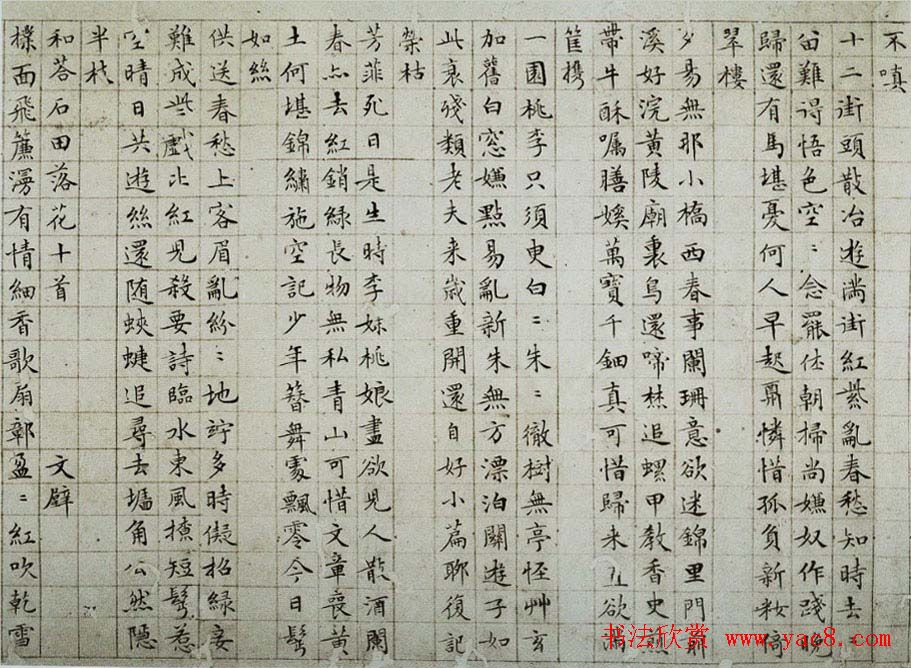 不嗔
十二街頭散冶遊滿街紅紫亂春愁知時去
留難得悟色空〻念罷仕朝掃尚嫌奴作踐晚
歸還有馬堪憂何人早起需憐惜孤負新妝倚
翠樓
夕易無那小橋西春事闌珊意欲迷錦里門前
溪好浣黃陵廟裏鳥還啼焚追螺甲教香史煎
帶牛酥囑膳媛萬寶千鈿真可惜歸来直欲滿
筐攜
一園桃李只須臾白〻朱〻徹樹無亭怪艸玄
加舊白窓嫌點易亂新朱無方漂泊關遊子如
此衰殘類老夫来歲重開還自好小篇聊復記
榮枯
芳菲死日是生時李妹桃娘盡欲兒人散酒闌
春亦去紅銷綠長物無私青山可惜文章喪黄
土何堪錦繡施空記少年簪舞處飄零今日鬢
如絲
供送春愁上客眉亂紛〻地竚多時儗招緑妾
難成些戲比紅兒殺要詩臨水東風撩短鬢惹
空晴日共遊絲還随蛺蜨追尋去墻角公然隱
半枝
和荅石田落花十首 文壁
撲面飛簾漫有情細香歌扇鄣盈〻紅吹乾雪
书法欣赏 www.yac8.com